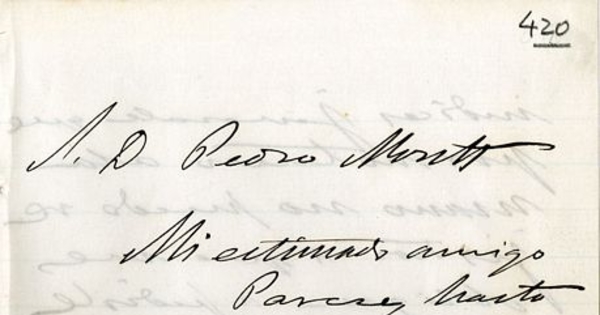 420
S. D Pedro Montt
Mi estimado amigo
Parece, hasta